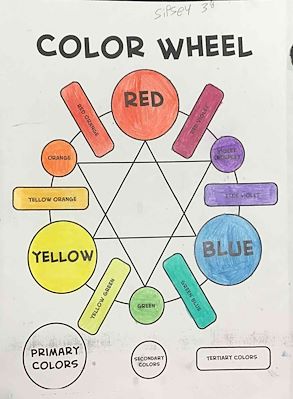 COLOR WHEEL
RED
RED ORANGE
RED VIOLET
ORANGE
YELLOW ORANGE
BLUE VIOLET
YELLOW
BLUE
YELLOW GREEN
BLUE GREEN
GREEN
PRIMARY
COLORS
SECONDARY
COLORS
TERTIARY COLORS